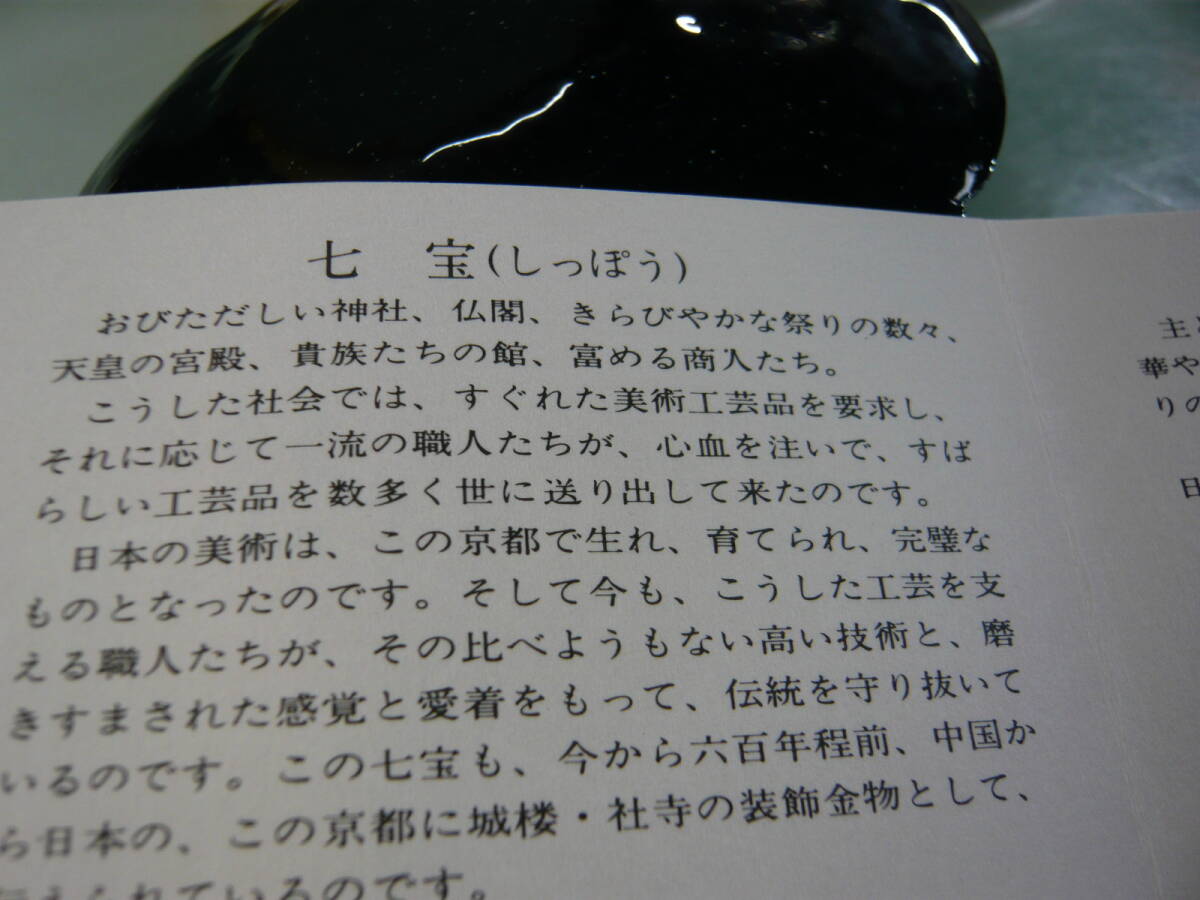 七 宝(しっぽう)
おびただしい神社、仏閣、きらびやかな祭りの数々、
天皇の宮殿、貴族たちの館、富める商人たち。
こうした社会では、すぐれた美術工芸品を要求し、
それに応じて一流の職人たちが、心血を注いで、すば
らしい工芸品を数多く世に送り出して来たのです。
日本の美術は、この京都で生れ、育てられ、完璧な
ものとなったのです。そして今も、こうした工芸を支
える職人たちが、その比べようもない高い技術と、磨
きすまされた感覚と愛着をもって、伝統を守り抜いて
いるのです。この七宝も、今から六百年程前、中国か
ら日本の、この京都に城楼・社寺の装飾金物として、
えられているのです。
主
華や
りの
日